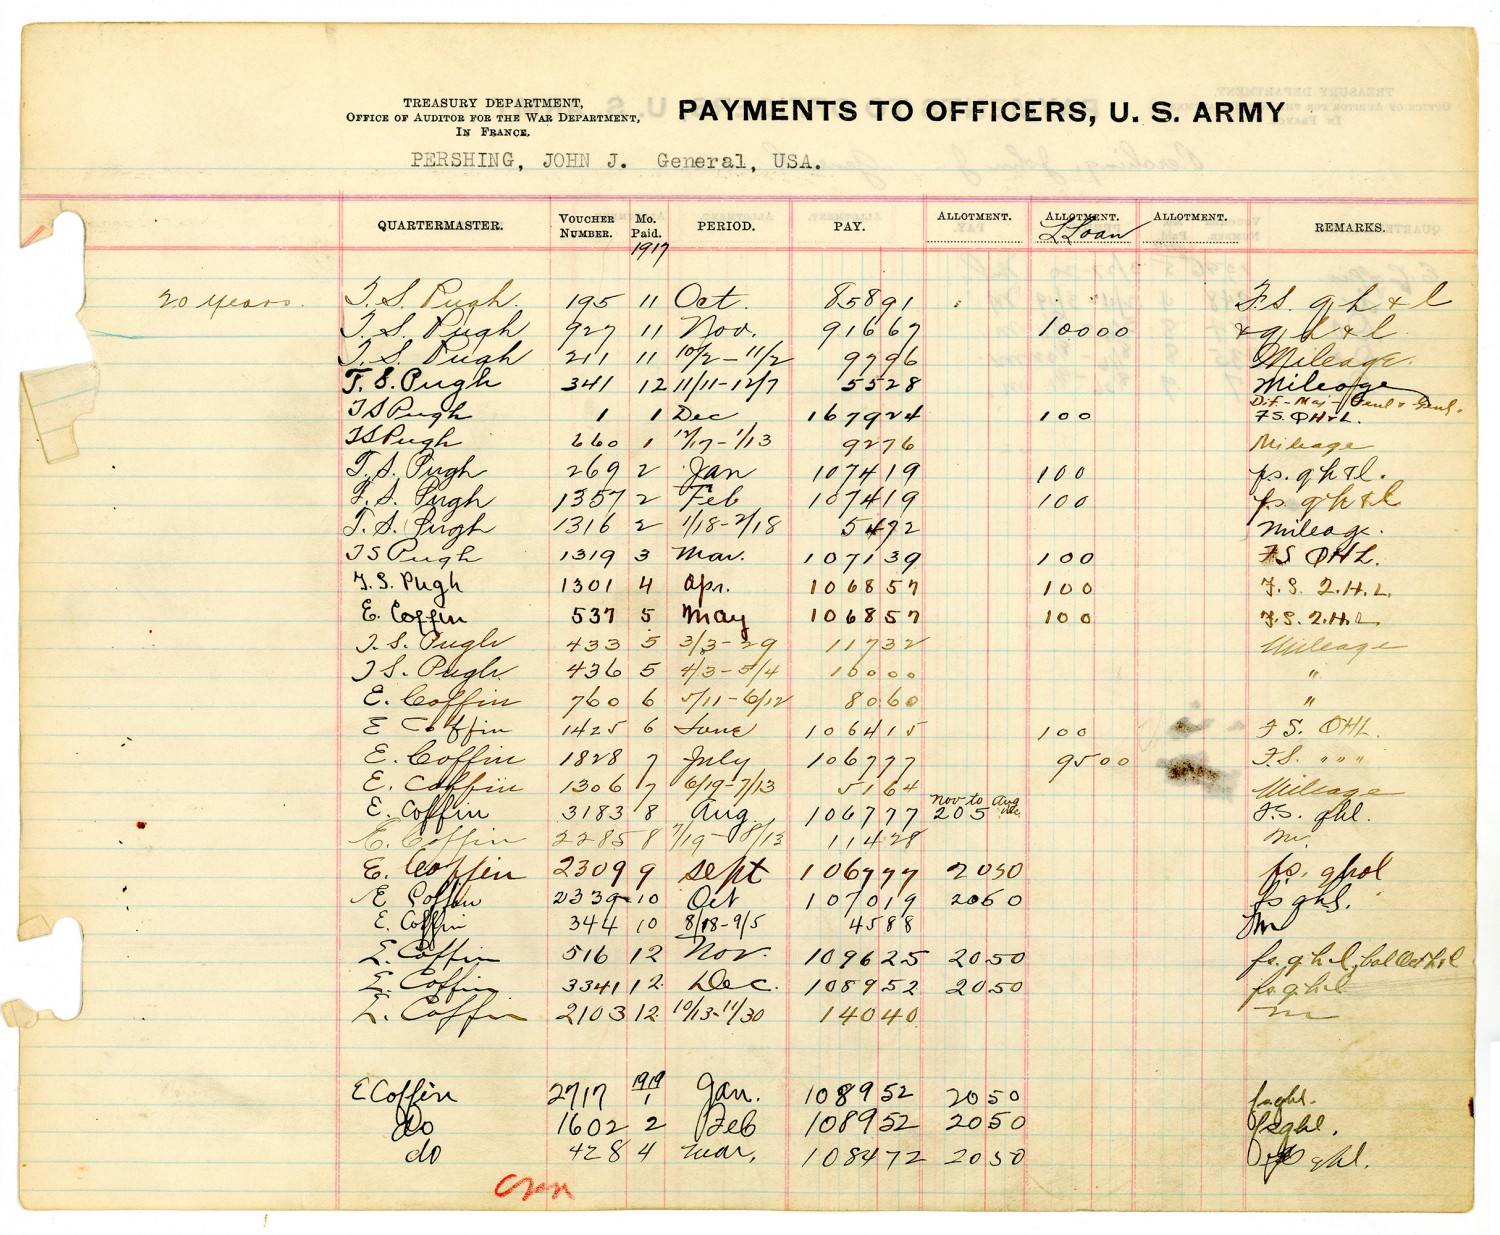 TREASURY DEPARTMENT,
OFFICE OF AUDITOR FOR THE WAR DEPARTMENT,
IN FRANCE.
PAYMENTS TO OFFICERS, U. S. ARMY
PERSHING, JOHN J. General, USA.
QUARTERMASTER. VOUCHER NUMBER. Mo. Paid. PERIOD. PAY. ALLOTMENT. ALLOTMENT. ALLOTMENT. REMARKS.
1917 L Loan
20 years. T. S. Pugh. 195 11 Oct. 85891 F.S. q h & l
T. S. Pugh 927 11 Nov. 91667 10000 & q h & l.
T. S. Pugh 211 11 10/2-11/2 9796 Mileage.
T. S. Pugh 341 12 11/11-12/7 5528 Mileage
T S Pugh 1 1 Dec 167924 100 Dif- Maj- Genl & Genl. F.S. QH&L.
T S Pugh 660 1 12/17-1/13 9276 Mileage
T. S. Pugh 269 2 Jan 107419 100 f.s. q h & l.
T. S. Pugh 1357 2 Feb 107419 100 f.s. q h & l
T. S. Pugh 1316 2 1/18-2/18 5472 Mileage.
T S Pugh 1319 3 Mar. 107139 100 F.S QHL.
T. S. Pugh 1301 4 Apr. 106857 100 F.S. Q.H.L.
E. Coffin 537 5 May 106857 100 F.S. Q.H.L
T. S. Pugh 433 5 3/3-29 11732 Mileage
T S. Pugh. 436 5 4/3-5/4 10000 "
E. Coffin 760 6 5/11-6/12 8060 "
E Coffin 1425 6 June 106415 100 F.S. QHL.
E. Coffin 1828 7 July 106777 9500 F.S. " " "
E. Coffin 1306 7 6/19-7/13 5164 Mileage
E. Coffin 3183 8 Aug 106777 Nov to Aug inc. 205 F.s. qhl.
E. Coffin 2285 8 7/19-8/13 11428 m.
E. Coffin 2309 9 Sept 106777 2050 fs. qhol
E Coffin 2339 10 Oct 107019 2060 fs qhl.
E. Coffin 344 10 8/18-9/5 4588 m
E. Coffin 516 12 Nov. 109625 2050 fs. q h l, bal Oct h l
E. Coffin 3341 12 Dec. 108952 2050 fs. q h l
E. Coffin 2103 12 10/13-11/30 14040 m
E Coffin 2717 1919 1 Jan. 108952 2050 fsqhl.
Do 1602 2 Feb 108952 2050 fsqhl.
do 428 4 Mar. 108472 2050 fs qhl.